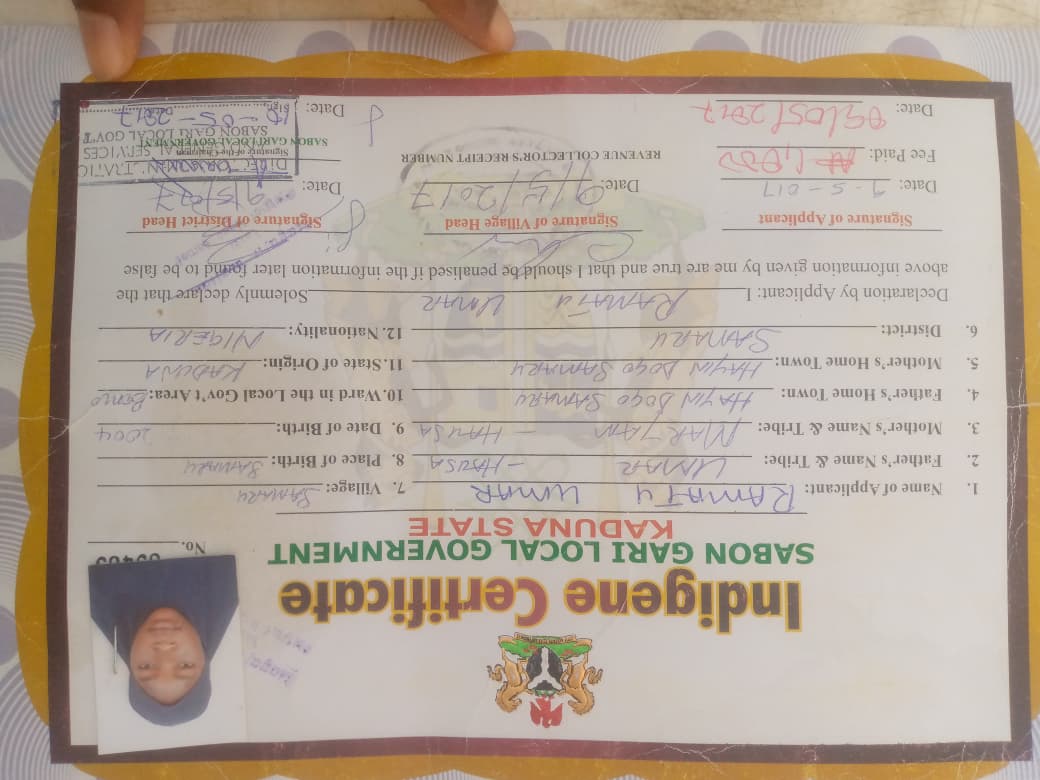 Indigene Certificate
SABON GARI LOCAL GOVERNMENT
KADUNA STATE
No.
1. Name of Applicant: RAMATU UMAR 7. Village: SAMARU
2. Father's Name & Tribe: UMAR - HAUSA 8. Place of Birth: SAMARU
3. Mother's Name & Tribe: MARYAM - HAUSA 9. Date of Birth: 2004
4. Father's Home Town: HAYIN DOGO SAMARU 10. Ward in the Local Gov't Area: BOMO
5. Mother's Home Town: HAYIN DOGO SAMARU 11. State of Origin: KADUNA
6. District: SAMARU 12. Nationality: NIGERIA
Declaration by Applicant: I RAMATU UMAR Solemnly declare that the
above information given by me are true and that I should be penalised if the information later found to be false
Signature of Applicant Signature of Village Head Signature of District Head
Date: 9-5-017 Date: 9/5/2017 Date: 9/5/2017
Fee Paid: ₦1,000 REVENUE COLLECTOR'S RECEIPT NUMBER
Signature of the Chairman
SABON GARI LOCAL GOVERNMENT
SABON GARI LOCAL GOVT
Date: 09/05/2017 Date: Sign. 10-05-2017